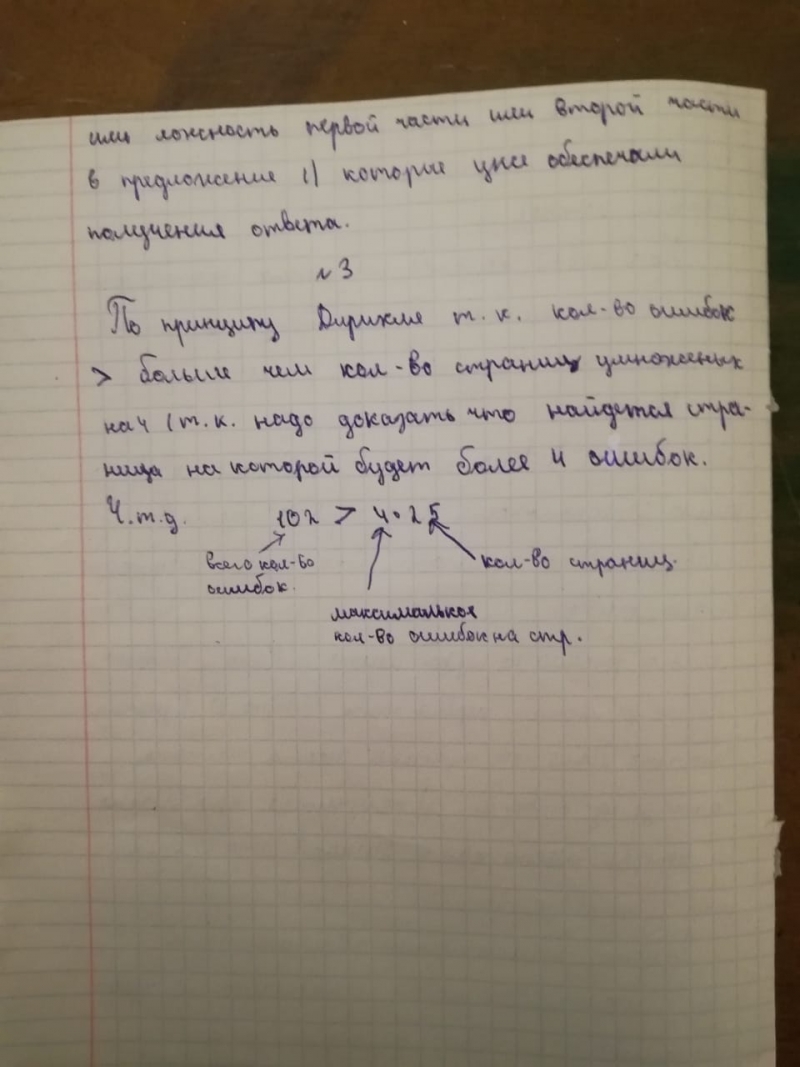 или ложность первой части или второй части
в предложение 1) которые уже обеспечали
получения ответа.
№3
По принципу Дирихле т.к. кол-во ошибок
> больше чем кол-во страниц умноженых
на 4 (т.к. надо доказать что найдется стра-
ница на которой будет более 4 ошибок.
Ч.т.д. 102 > 4·25
всего кол-во кол-во страниц.
ошибок.
максимальное
кол-во ошибок на стр.